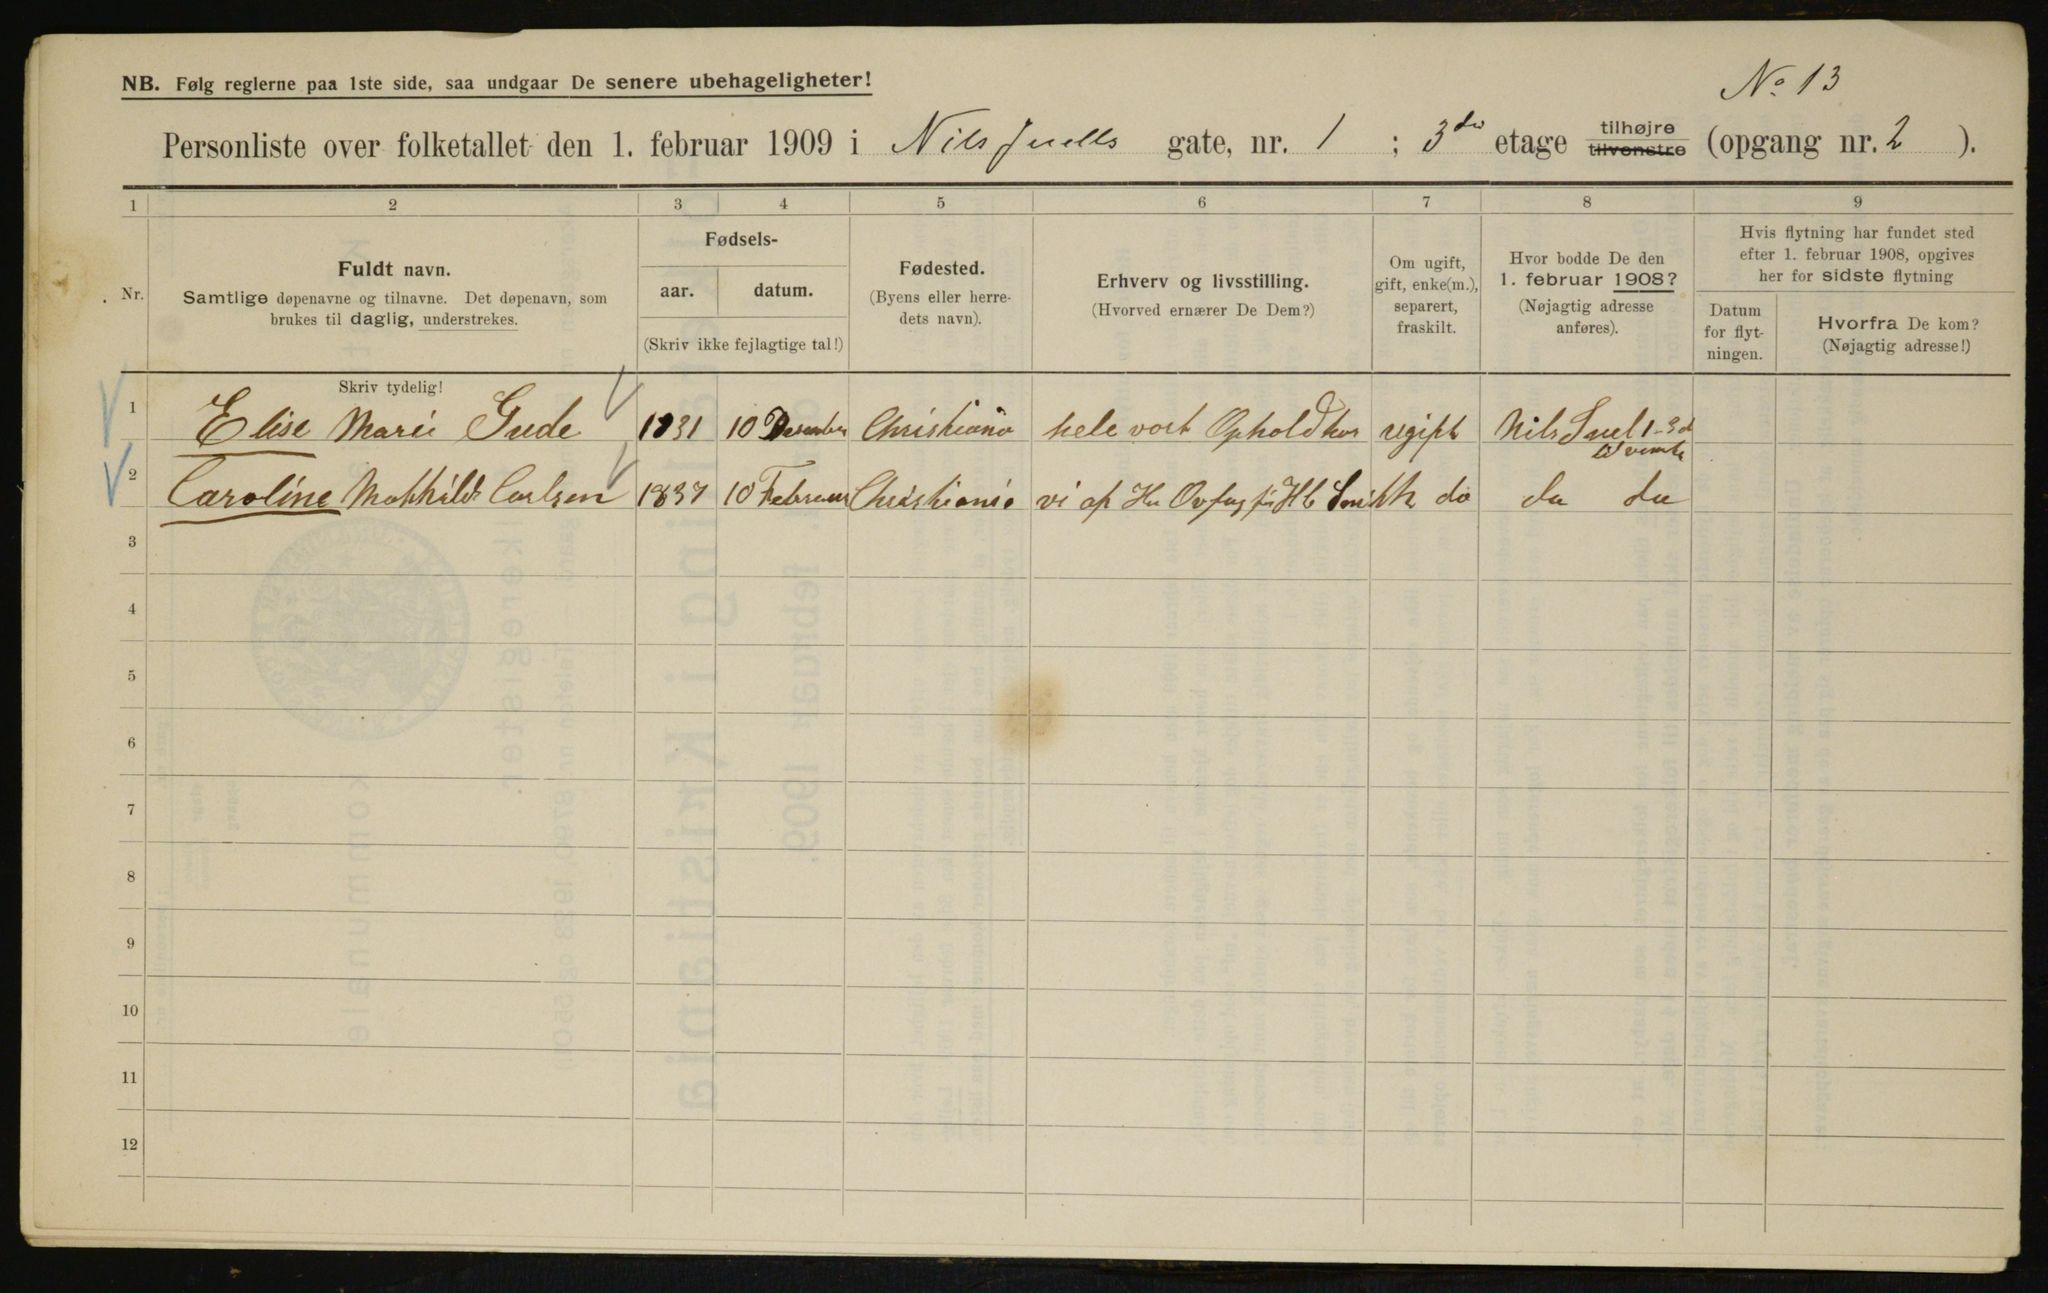 No 13
NB. Følg reglerne paa 1ste side, saa undgaar De senere ubehageligheter!
Personliste over folketallet den 1. februar 1909 i Nils Juells gate, nr. 1 ; 3die etage tilhøjre tilvenstre (opgang nr. 2 ).
1 2 3 4 5 6 7 8 9
Nr.
Fuldt navn.
Samtlige døpenavne og tilnavne. Det døpenavn, som
brukes til daglig, understrekes.
Fødsels-
aar. datum.
(Skriv ikke fejlagtige tal!)
Fødested.
(Byens eller herre-
dets navn).
Erhverv og livsstilling.
(Hvorved ernærer De Dem?)
Om ugift,
gift, enke(m.),
separert,
fraskilt.
Hvor bodde De den
1. februar 1908?
(Nøjagtig adresse
anføres).
Hvis flytning har fundet sted
efter 1. februar 1908, opgives
her for sidste flytning
Datum
for flyt-
ningen.
Hvorfra De kom?
(Nøjagtig adresse!)
Skriv tydelig!
1 Elise Marie Gude 1831 10 Desember Christiania hele vort Ophold har ugift Nils Juel 1-3d
til venstre
2 Caroline Mathilde Carlsen 1837 10 Februar Christiania vi af Hr do da da
3
4
5
6
7
8
9
10
11
12